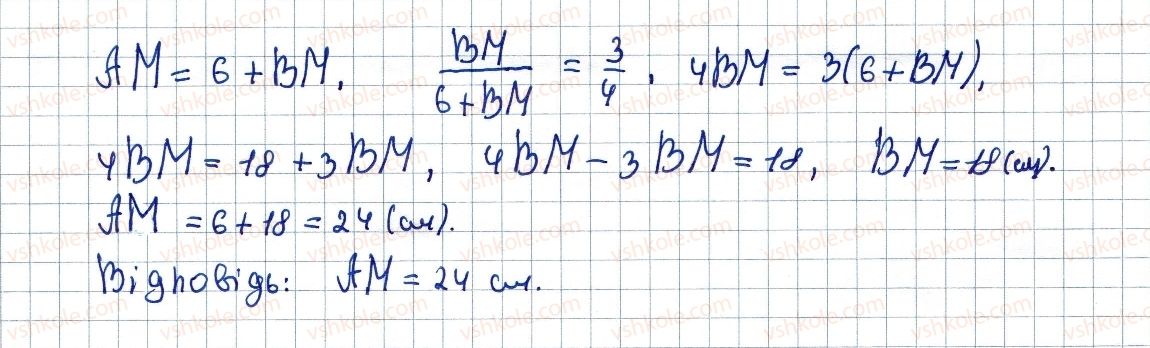 AM = 6 + BM, BM/(6 + BM) = 3/4, 4BM = 3(6 + BM),
4BM = 18 + 3BM, 4BM - 3BM = 18, BM = 18 (см).
AM = 6 + 18 = 24 (см).
Відповідь: AM = 24 см.